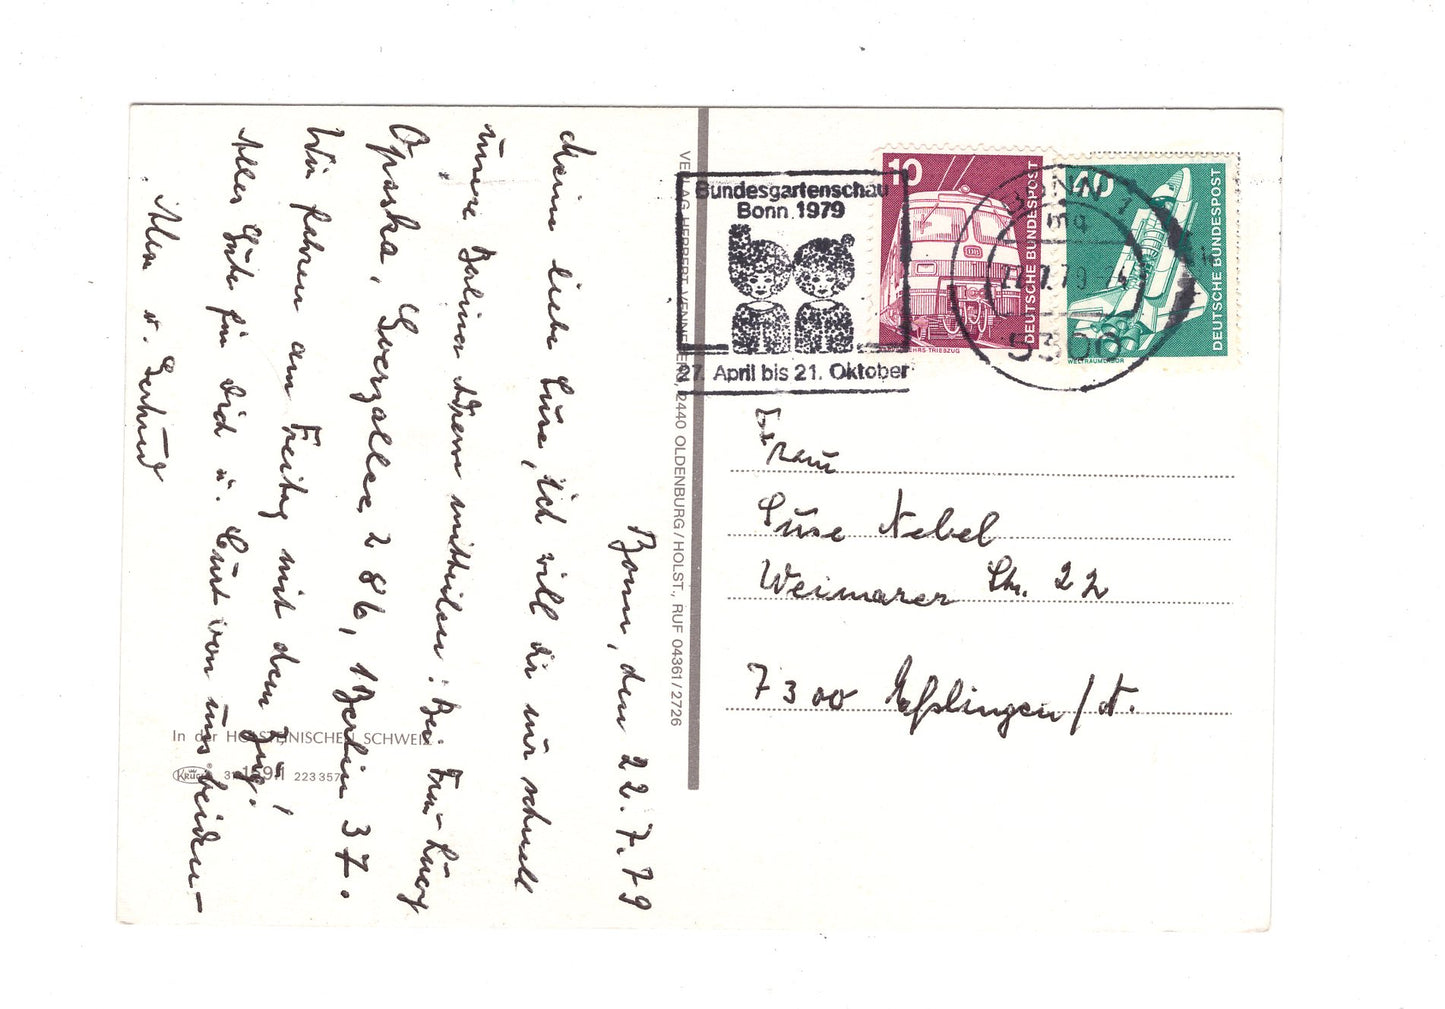 Bonn, den 22.7.79
Meine liebe Luise, ich will dir nur schnell
unsere Berliner Adresse mitteilen: Bei Frau Lucy
Oparka, Sverzallee 286, 1 Berlin 37.
Wir fahren am Freitag mit dem Zug!
Alles Gute für Dich u. Curt von uns beiden –
Alex u. Gertrud
VERLAG HERBERT VENNEKEN, 2440 OLDENBURG/HOLST., RUF 04361/2726
In der HOLSTEINISCHEN SCHWEIZ
KRÜGER 1591 223357
Bundesgartenschau
Bonn 1979
27. April bis 21. Oktober
10
DEUTSCHE BUNDESPOST
NAHVERKEHRS TRIEBZUG
40
DEUTSCHE BUNDESPOST
WELTRAUMLABOR
BONN 1
mg
22.7.79
5300
Frau
Luise Nebel
Weimarer Str. 22
7300 Eßlingen/N.